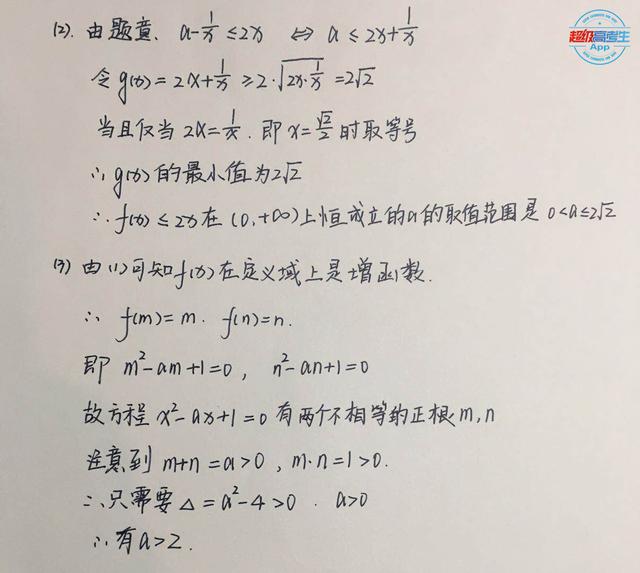 超级高考生
App
(2). 由题意、a-1/x≤2x ⇔ a≤2x+1/x
令g(x)=2x+1/x≥2·√(2x·1/x)=2√2
当且仅当 2x=1/x. 即x=√2/2时取等号
∴g(x)的最小值为2√2
∴f(x)≤2x在(0,+∞)上恒成立的a的取值范围是 0<a≤2√2
(3) 由(1)可知f(x)在定义域上是增函数.
∴ f(m)=m. f(n)=n.
即 m²-am+1=0, n²-an+1=0
故方程x²-ax+1=0有两个不相等的正根m,n
注意到 m+n=a>0, m·n=1>0.
∴只需要△=a²-4>0. a>0
∴有a>2.